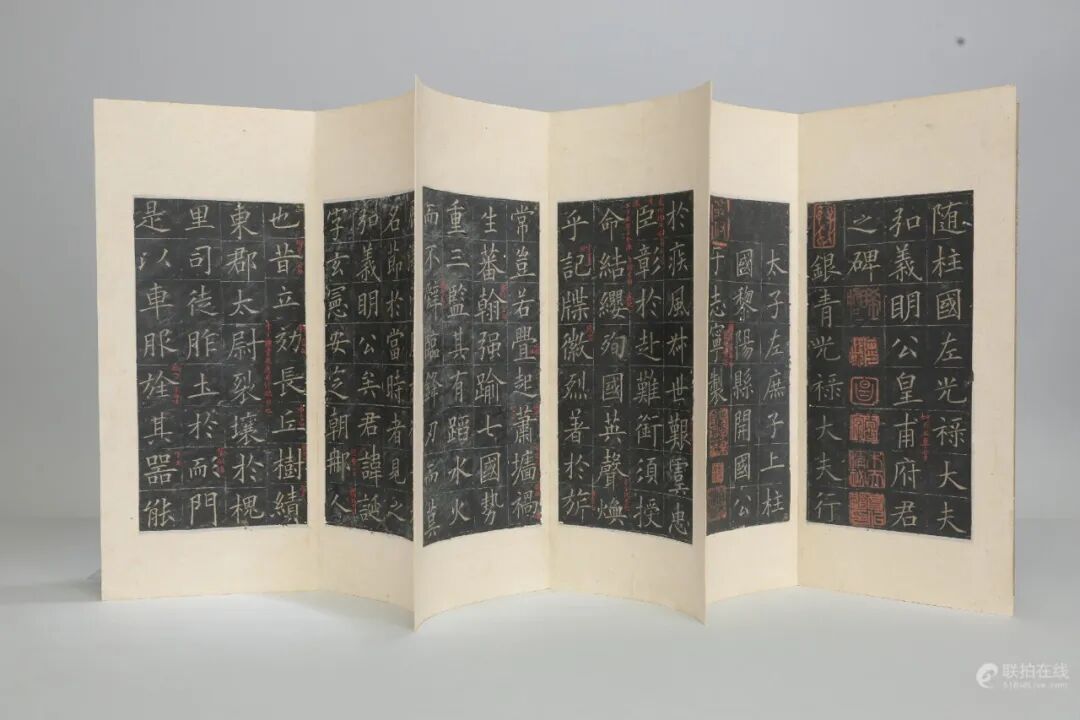 随柱國左光禄大夫
弘義明公皇甫府君
之碑
銀青光禄大夫行
太子左庶子上柱
國黎陽縣開國公
于志寧製
於疾風叔世艱虞忠
臣彰於赴難銜須授
命結纓殉國英聲煥
乎記牒徽烈著於旂
常豈若舋起蕭墻禍
生蕃翰强踰七國勢
重三監其有蹈水火
而不辭臨鋒刃而莫
名節於當時者見之
弘義明公矣君諱誕
字玄憲安定朝那人
也昔立効長丘樹績
東郡太尉裂壤於槐
里司徒胙土於耏門
是以車服旌其器能
联拍在线